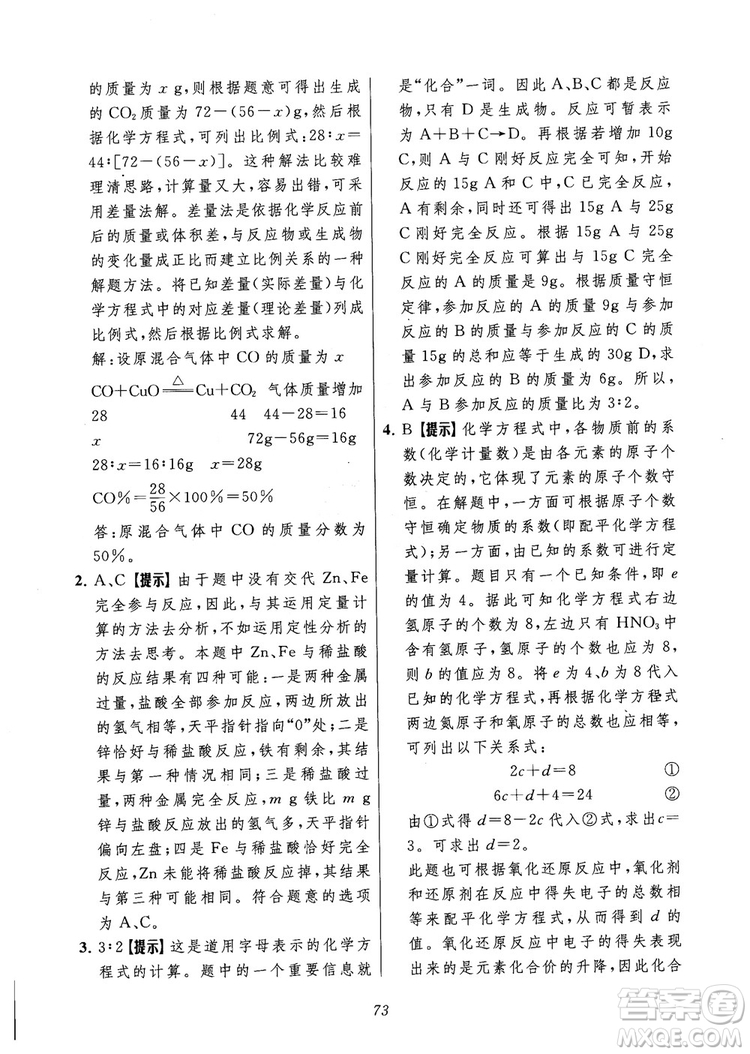 的质量为 x g,则根据题意可得出生成
的 CO₂ 质量为 72-(56-x)g,然后根
据化学方程式,可列出比例式:28∶x=
44∶[72-(56-x)]。这种解法比较难
理清思路,计算量又大,容易出错,可采
用差量法解。差量法是依据化学反应前
后的质量或体积差,与反应物或生成物
的变化量成正比而建立比例关系的一种
解题方法。将已知差量(实际差量)与化
学方程式中的对应差量(理论差量)列成
比例式,然后根据比例式求解。
解:设原混合气体中 CO 的质量为 x
CO+CuO=△=Cu+CO₂ 气体质量增加
28 44 44-28=16
x 72g-56g=16g
28∶x=16∶16g
CO%=28/56×100%=50%
答:原混合气体中 CO 的质量分数为
50%。
2. A、C【提示】由于题中没有交代 Zn、Fe
完全参与反应,因此,与其运用定量计
算的方法去分析,不如运用定性分析的
方法去思考。本题中 Zn、Fe 与稀盐酸
的反应结果有四种可能:一是两种金属
过量,盐酸全部参加反应,两边所放出
的氢气相等,天平指针指向“0”处;二是
锌恰好与稀盐酸反应,铁有剩余,其结果
与第一种情况相同;三是与稀盐酸反应
中,两种金属完全反应,m g 铁比 m g
锌与盐酸反应放出的氢气多,天平指针
偏向左盘;四是 Fe 与稀盐酸恰好完全
反应,Zn 未能将稀盐酸反应掉,其结果
与第三种可能相同。符合题意的选项
为 A、C。
3. 3∶2【提示】这是道用字母表示的化学方
程式的计算。题中的一个重要信息就
是“化合”一词。因此 A、B、C 都是反应
物,只有 D 是生成物。反应可暂表示
为 A+B+C→D。再根据若增加 10g
C,则 A 与 C 刚好反应完全可知,开始
反应的 15g A 与 15g C 完全反应后,
A 有剩余,同时还可得出 15g A 与 25g
C 刚好完全反应。根据 15g A 与 25g
C 刚好完全反应可算出与 15g C 完全
反应的 A 的质量是 9g。根据质量守恒
定律,参加反应的 A 的质量 9g 与参加
反应的 B 的质量及参加反应的 C 的质
量 15g 的总和应等于生成的 D 的质
量 30g,求出参加反应的 B 的质量为 6g。所以,
A 与 B 参加反应的质量比为 3∶2。
4. B【提示】化学方程式中,各物质前的系
数(化学计量数)是由各元素的原子个
数决定的,它体现了元素的原子个数守
恒。在解题中,一方面可根据原子个数
守恒确定物质的系数(即配平化学方程
式),另一方面,由已知的系数可进行定
量计算。题目已交代:当 a 为 3 时,即 e
的值为 4。据此可知化学方程式右边
氢原子的个数为 8,左边只有 HNO₃ 中
含有氢原子,氢原子的个数也应为 8,
则 b 的值应为 8。将 e 为 4、b 为 8 代入
已知的化学方程式,再根据化学方程式
两边氮原子和氧原子的总数也应相等,
可列出以下关系式:
2c+d=8 ①
6c+d+4=24 ②
由①式得 d=8-2c 代入②式,求出 c=
3。可求出 d=2。
此题也可根据氧化还原反应中,氧化剂
和还原剂在反应中得失电子的总数相
等来配平化学方程式,然后得出 d 的
值。氧化还原反应中电子的得失外在表
现出来的是元素化合价的升降,因此化合
73
答案圈